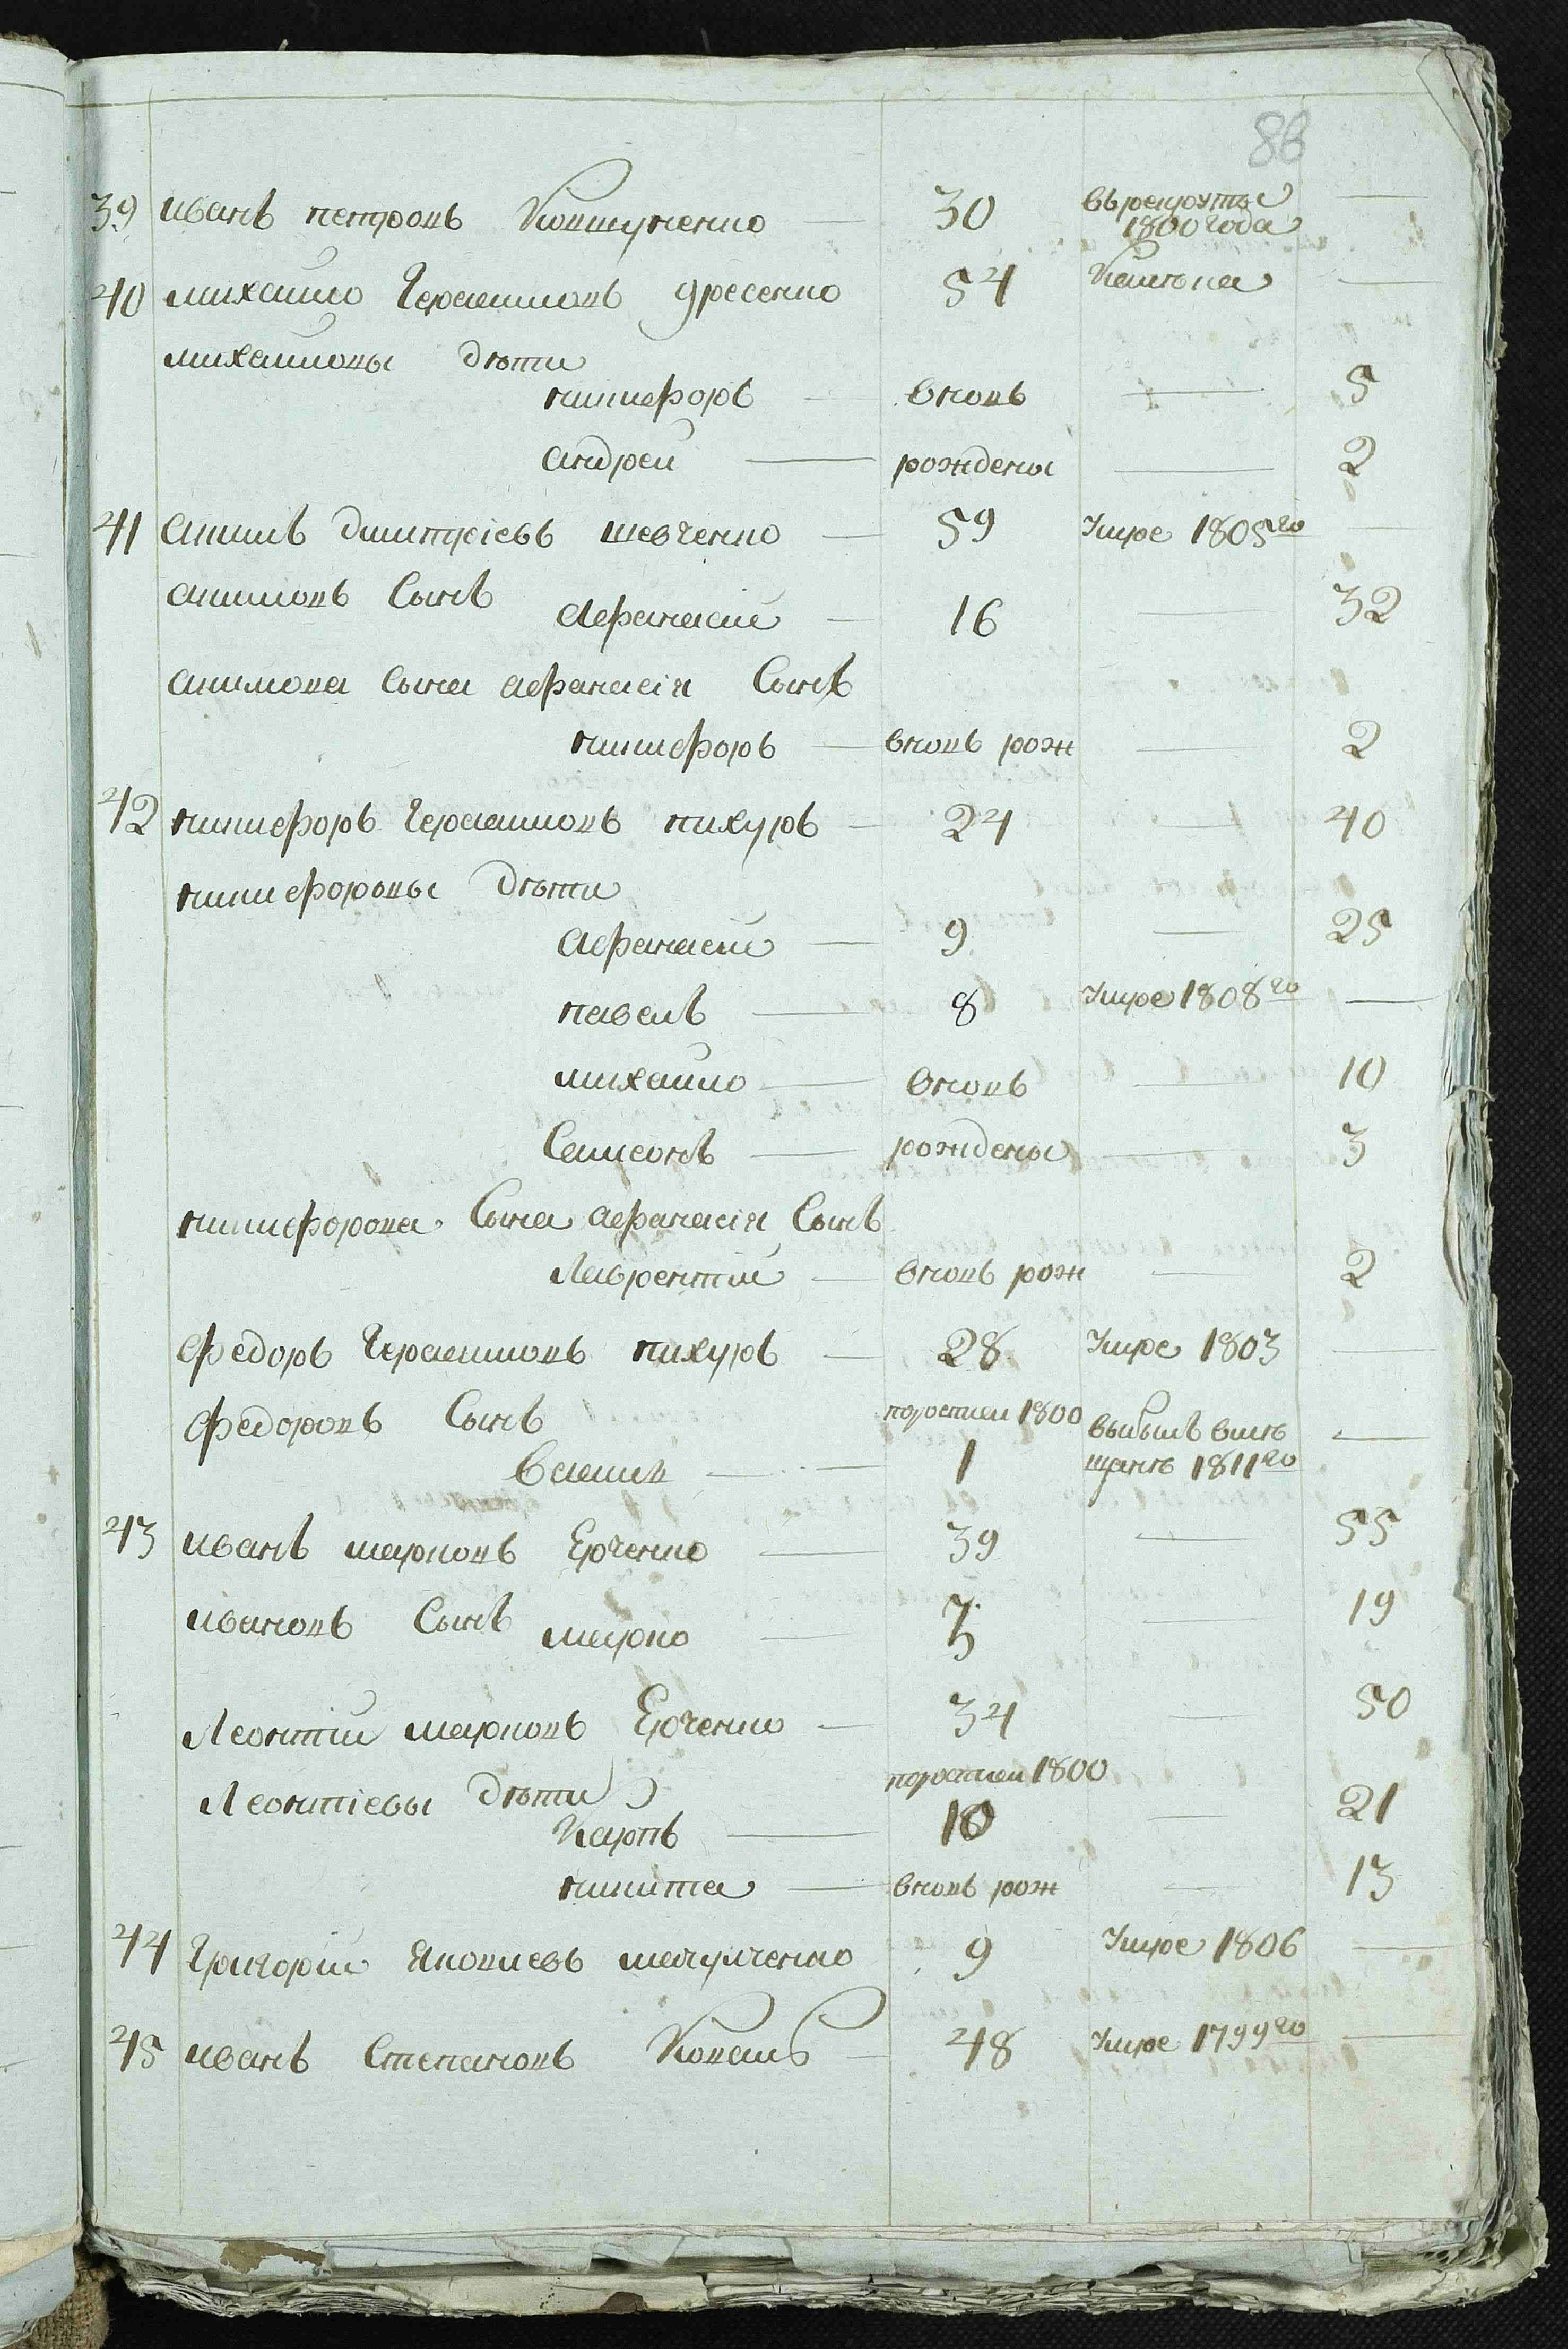 88
39 иванъ петровъ Ковшученко — 30 въ рекруты —
1800 года
40 михайло Герасимовъ 54 —
михайловы дѣти
никифоръ — вновь — 5
андрей — рождены — 2
41 Акимъ дмитріевъ шевченко — 59 Умре 1805го —
акимовъ Сынъ
Афанасій — 16 — 32
акимова Сына афанасія Сынъ
никифоръ — вновь рож — 2
42 никифоръ Герасимовъ пихуръ — 24 — 40
никифоровы дѣти
Афанасій — 9 — 25
павелъ — 8 Умре 1808го —
михайло — вновь — 10
Самсонъ — рождены — 3
никифорова Сына афанасія Сынъ
Лаврентій — вновь рож — 2
федоръ Герасимовъ пихуръ — 28 Умре 1803 —
федоровъ Сынъ 1800 выбылъ вмѣ —
Василій — 1 щанѣ 1811го
43 иванъ марковъ Ерченко — 39 — 55
ивановъ Сынъ марко — 3 — 19
Леонтій марковъ Ерченко — 34 — 50
Леонтіевы дѣти 1800
Карпъ — 10 — 21
никита — вновь рож — 13
44 Григорій Яковлевъ 9 Умре 1806 —
45 иванъ Степановъ Коваль — 48 Умре 1799го —